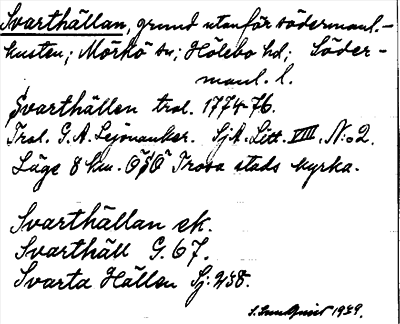 Svarthällan, grund utanför södermanl.-
kusten; Mörkö sn; Hölebo hd; Söder-
manl. l.
Svarthällen trol. 1774-76.
Trol. G. A. Lejonanker. SjA. Litt. VIII. No 2.
Läge 8 km. ÖSÖ Trosa stads kyrka.
Svarthällan ek.
Svarthäll G. 67.
Svarta Hällen Sj: 238.
1939.